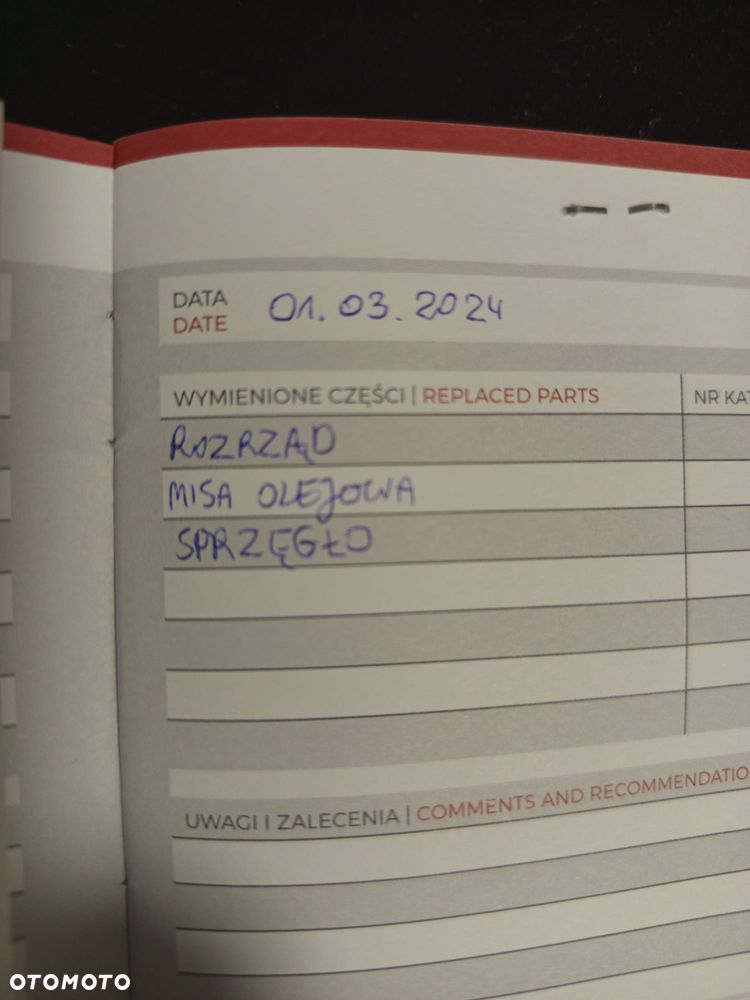 DATA
DATE
01.03.2024
WYMIENIONE CZĘŚCI | REPLACED PARTS
NR KAT
ROZRZĄD
MISA OLEJOWA
SPRZĘGŁO
UWAGI I ZALECENIA | COMMENTS AND RECOMMENDATIO
OTOMOTO